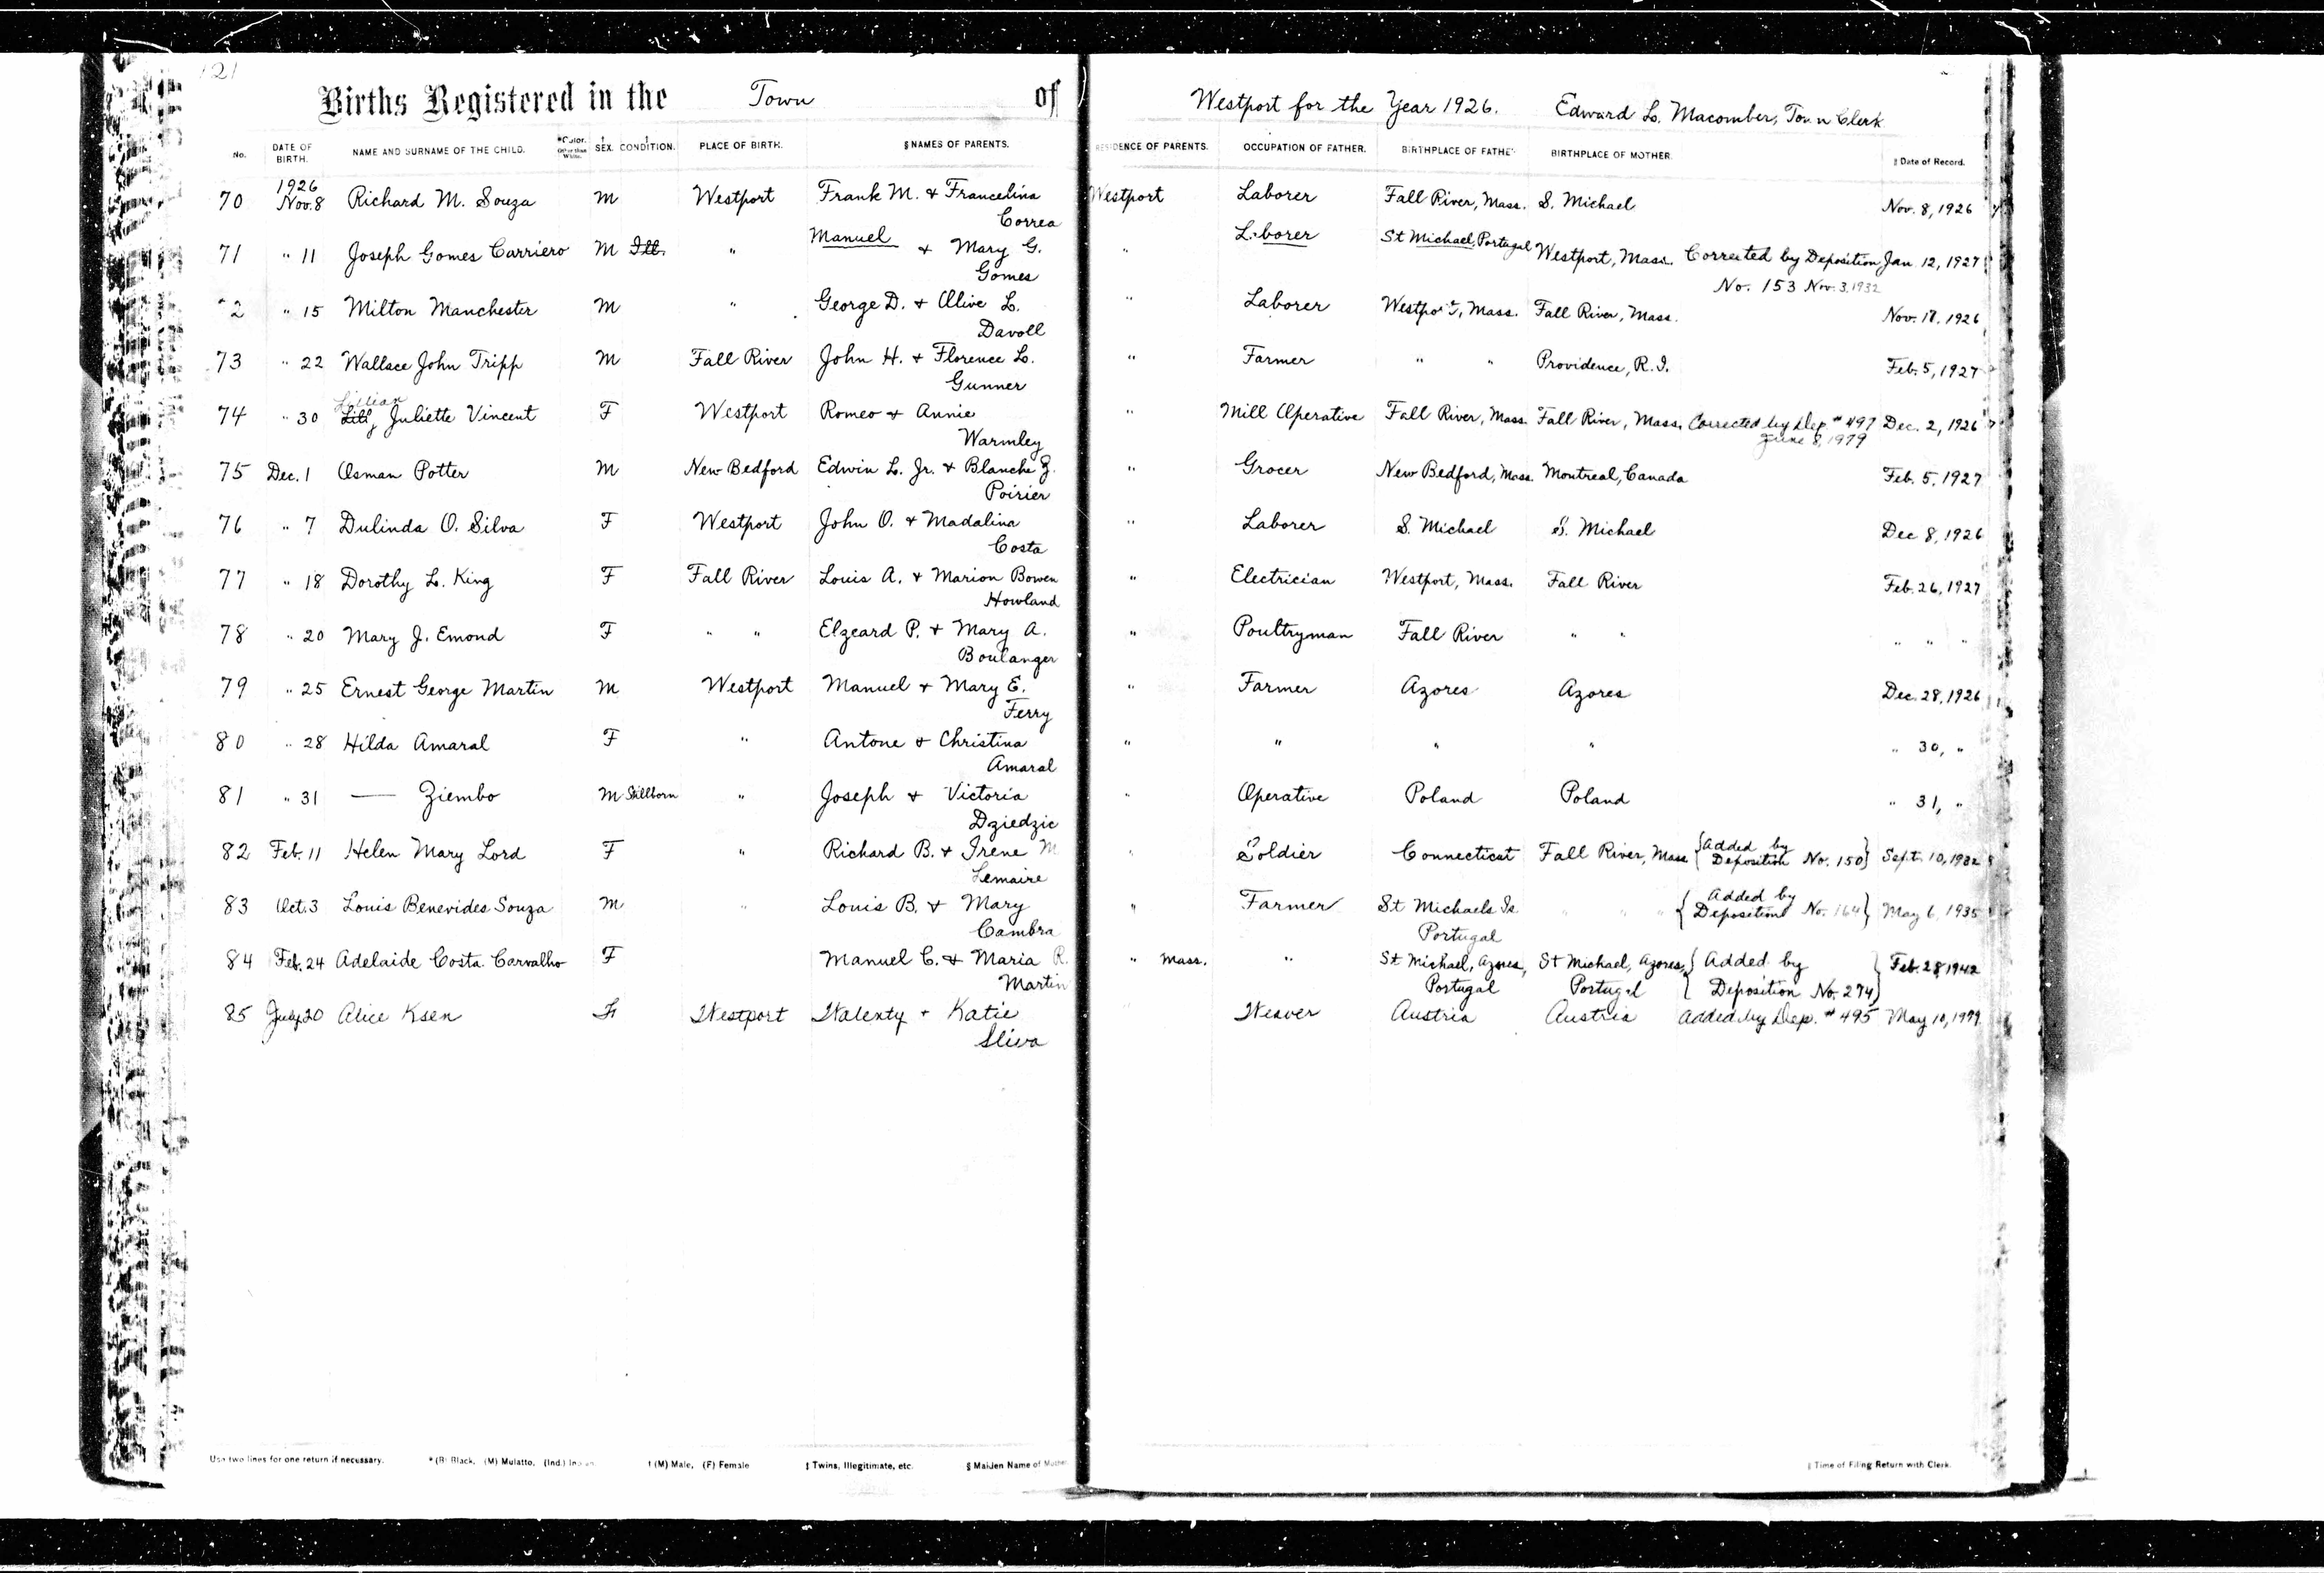 121
Births Registered in the Town of Westport for the Year 1926. Edward L. Macomber, Town Clerk
No. DATE OF BIRTH. NAME AND SURNAME OF THE CHILD. *Color. Other than White. SEX. CONDITION. PLACE OF BIRTH. § NAMES OF PARENTS. RESIDENCE OF PARENTS. OCCUPATION OF FATHER. BIRTHPLACE OF FATHER BIRTHPLACE OF MOTHER. Date of Record.
1926
70 Nov. 8 Richard M. Souza M Westport Frank M. & Francelina Westport Laborer Fall River, Mass. S. Michael Nov. 8, 1926
Correa
71 " 11 Joseph Gomes Carriero M Ill. " Manuel & Mary G. " Laborer St Michael, Portugal Westport, Mass. Corrected by Deposition Jan. 12, 1927
Gomes No. 153 Nov. 3, 1932
72 " 15 Milton Manchester M " George D. & Olive L. " Laborer Westport, Mass. Fall River, Mass. Nov. 17, 1926
Davoll
73 " 22 Wallace John Tripp M Fall River John H. & Florence L. " Farmer " " Providence, R.I. Feb. 5, 1927
Gunner
Lillian
74 " 30 Lily Juliette Vincent F Westport Romeo & Annie " Mill Operative Fall River, Mass. Fall River, Mass. Corrected by Dep. # 497 Dec. 2, 1926
Warmley June 8, 1979
75 Dec. 1 Osman Potter M New Bedford Edwin L. Jr. & Blanche Z. " Grocer New Bedford, Mass. Montreal, Canada Feb. 5, 1927
Poirier
76 " 7 Dulinda O. Silva F Westport John O. & Madalina " Laborer S. Michael S. Michael Dec 8, 1926
Costa
77 " 18 Dorothy L. King F Fall River Louis A. & Marion Bowen " Electrician Westport, Mass. Fall River Feb. 26, 1927
Howland
78 " 20 Mary J. Emond F " " Elzeard P. & Mary A. " Poultryman Fall River " " " " "
Boulanger
79 " 25 Ernest George Martin M Westport Manuel & Mary E. " Farmer Azores Azores Dec. 28, 1926
Ferry
80 " 28 Hilda Amaral F " Antone & Christina " " " " " 30, "
Amaral
81 " 31 — Ziembo M Stillborn " Joseph & Victoria " Operative Poland Poland " 31, "
Dziedzic
82 Feb. 11 Helen Mary Lord F " Richard B. & Irene M " Soldier Connecticut Fall River, Mass {Added by Deposition No. 150} Sept. 10, 1932
Lemaire
83 Oct. 3 Louis Benevides Souza M " Louis B. & Mary " Farmer St Michaels Is. " " " {Added by Deposition No. 164} May 6, 1935
Cambra Portugal
84 Feb. 24 Adelaide Costa Carvalho F Manuel C. & Maria R. " Mass. " St Michael, Azores, St Michael, Azores, {Added by Feb. 28, 1942
Martin Portugal Portugal Deposition No. 274}
85 July 20 Alice Ksen F Westport Walenty + Katie Weaver Austria Austria Added by Dep. # 495 May 10, 1979
Sliva
Use two lines for one return if necessary. * (B) Black, (M) Mulatto, (Ind.) Indian † (M) Male, (F) Female ‡ Twins, Illegitimate, etc. § Maiden Name of Mother ‖ Time of Filing Return with Clerk.